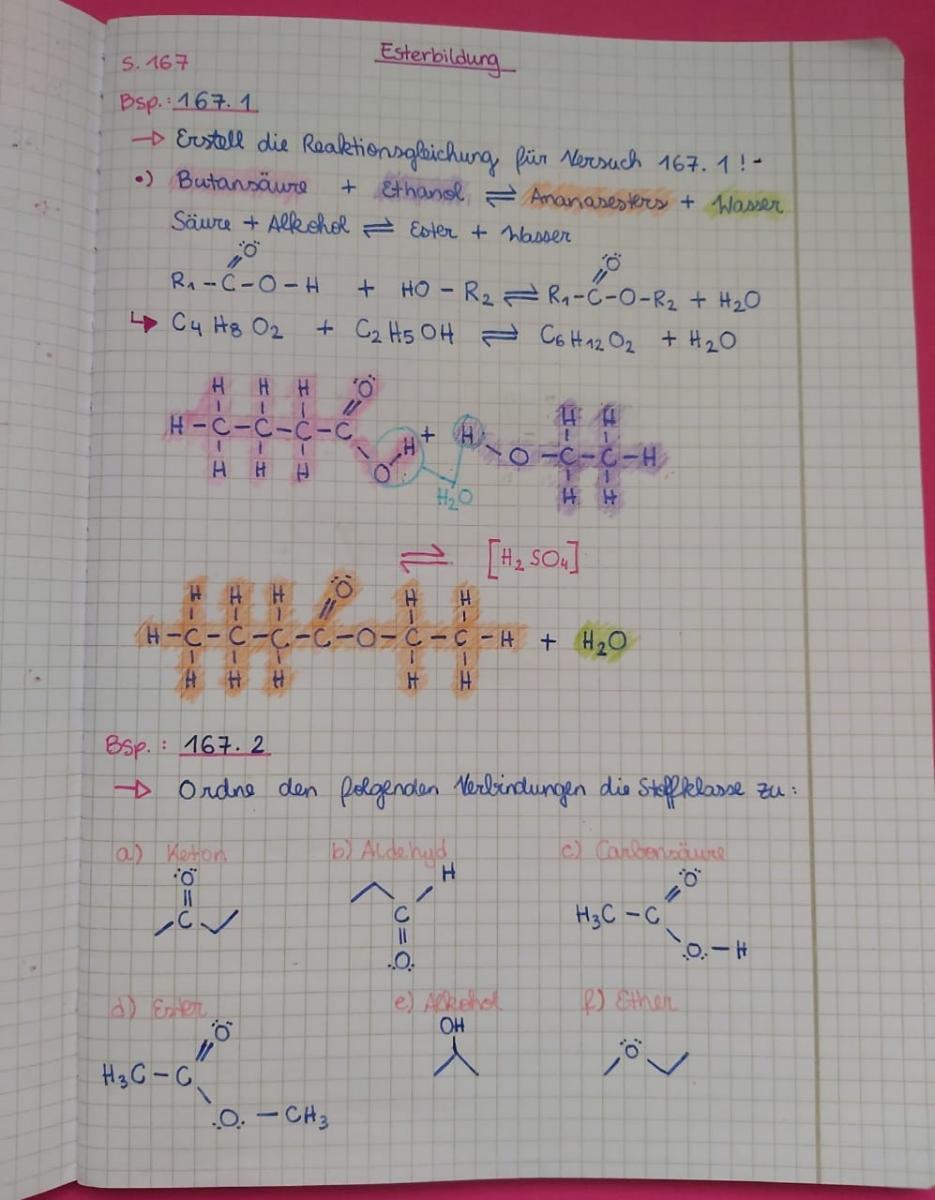 Esterbildung
S. 167
Bsp.: 167.1
→ Erstell die Reaktionsgleichung für Versuch 167.1!
•) Butansäure + Ethanol ⇌ Ananasesters + Wasser
Säure + Alkohol ⇌ Ester + Wasser
O O
R₁ – C – O – H + HO – R₂ ⇌ R₁ – C – O – R₂ + H₂O
↳ C₄H₈O₂ + C₂H₅OH ⇌ C₆H₁₂O₂ + H₂O
H H H O H H
H – C – C – C – C H + H – O – C – C – H
H H H O H₂O H H
⇌ [H₂SO₄]
H H H O H H
H – C – C – C – C – O – C – C – H + H₂O
H H H H H
Bsp.: 167.2
→ Ordne den folgenden Verbindungen die Stoffklasse zu:
a) Keton b) Aldehyd c) Carbonsäure
O H O
C C H₃C – C
O O – H
d) Ester e) Alkohol f) Ether
O OH O
H₃C – C
O – CH₃